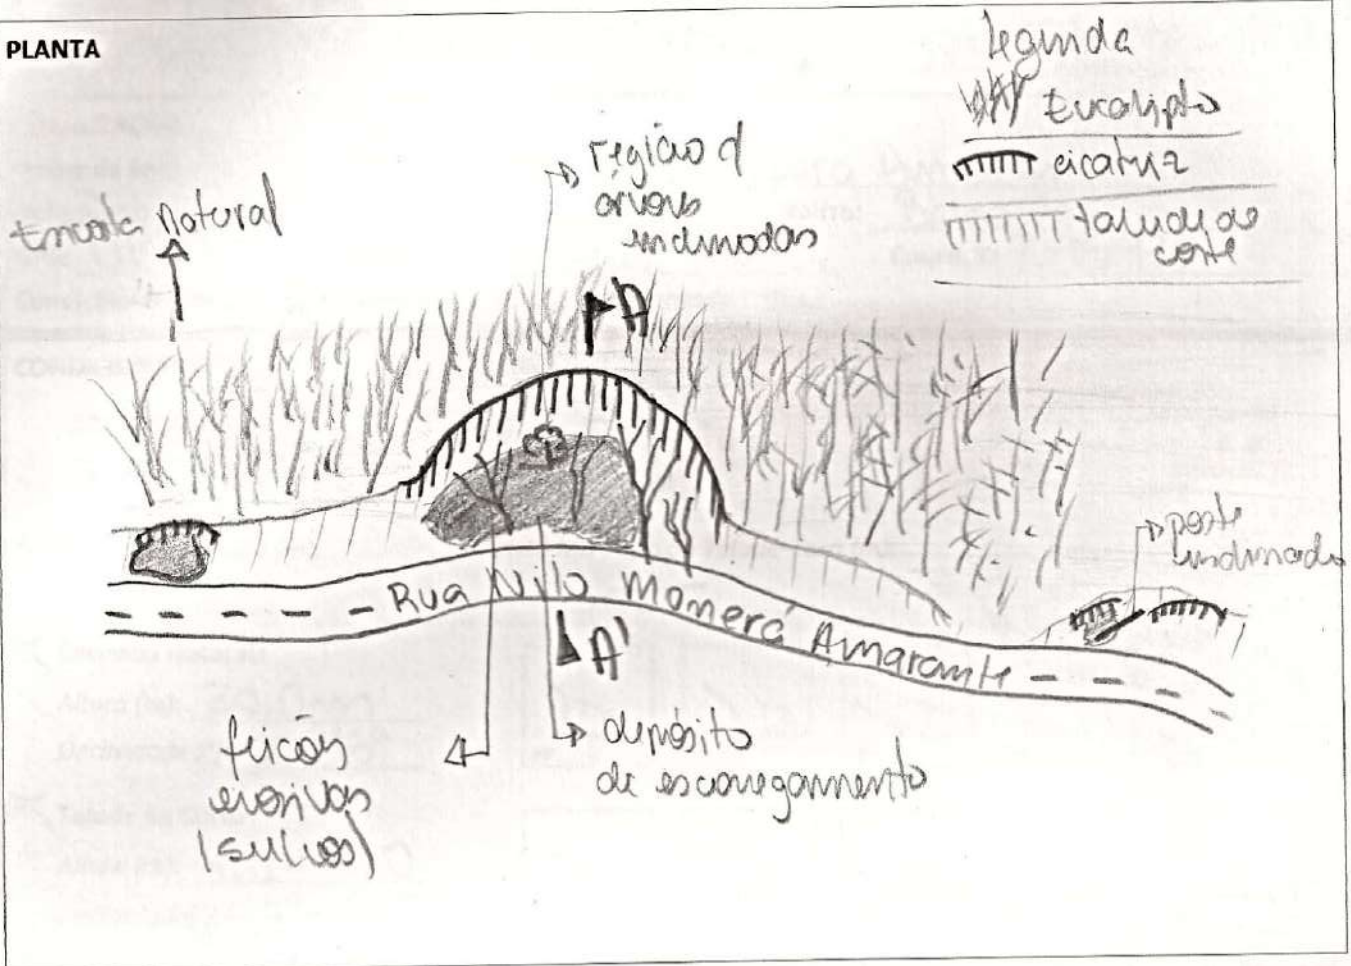 PLANTA
Legenda
Eucalipto
cicatriz
talude de
corte
região d
árvores
inclinadas
Encosta natural
A
poste
inclinado
Rua Nilo Monerá Amarante
A'
feições
erosivas
(sulcos)
depósito
de escorregamento